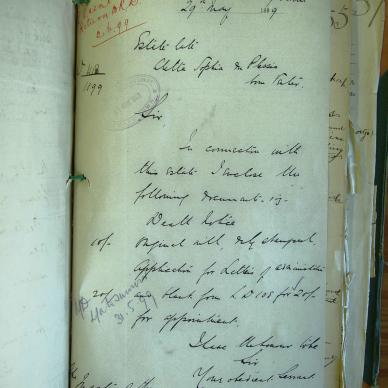 29th May 1899
Estate late
Aletta Sophia du Plessis
born Venter.
1899
Sir
In connection with
this Estate I enclose the
following documents viz-
Death Notice
10/- Original will, duly stamped
Application for Letters of administration
20/- and blank form L D 105 for 20/-
for appointment.
I have the honour to be
Sir
Your obedient Servant
31.5.99
2.6.99